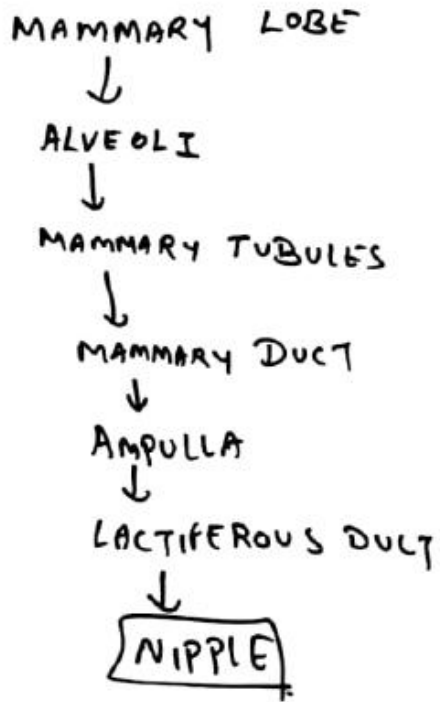 MAMMARY LOBE
ALVEOLI
MAMMARY TUBULES
MAMMARY DUCT
AMPULLA
LACTIFEROUS DUCT
NIPPLE